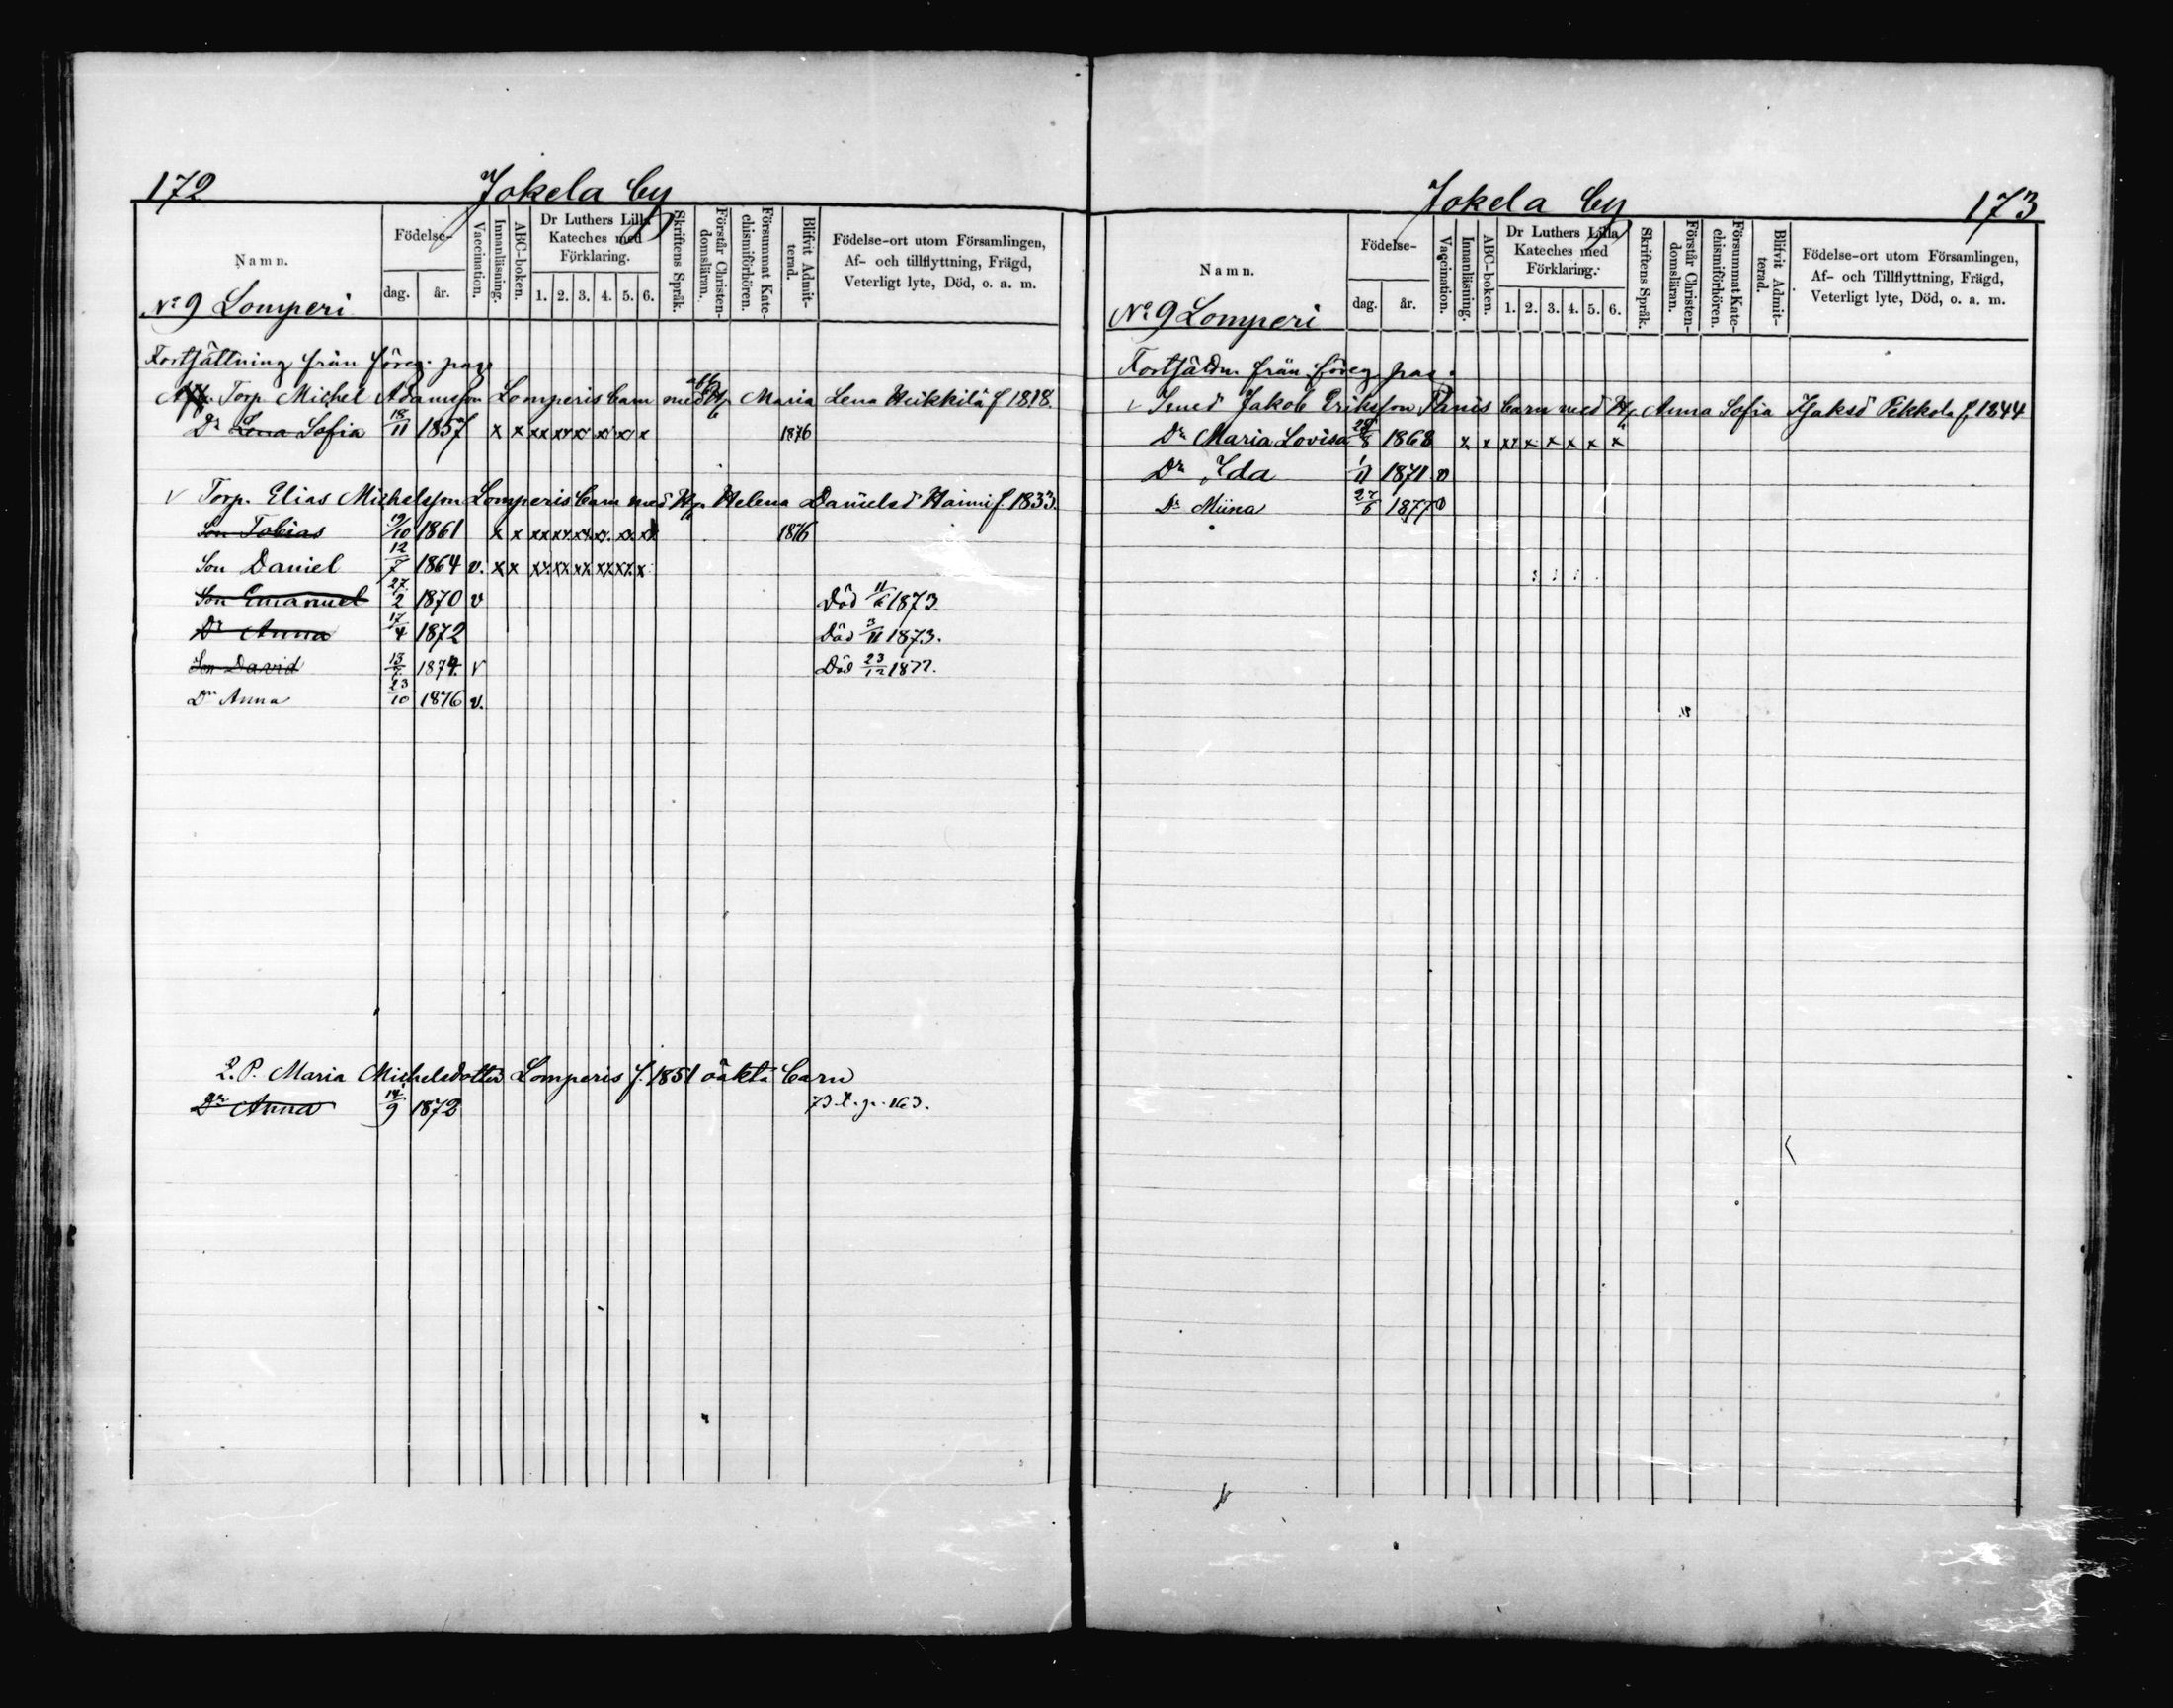 172 Jokela by
Namn. Födelse- dag. år. Vaccination. Innanläsning. ABC-boken. Dr Luthers Lilla Kateches med Förklaring. 1. 2. 3. 4. 5. 6. Skriftens Språk. Förstår Christendomsläran. Försummat Katechismiförhören. Blifvit Admitterad. Födelse-ort utom Församlingen, Af- och tillflyttning, Frägd, Veterligt lyte, Död, o. a. m.
No 9 Lomperi
Fortsättning från föreg. pag.
Torp. Michel Adamsson Lomperis barn med Maria Lena Heikkilä f 1818.
Dr Lena Sofia 18/11 1857 x x xx xx xx xx xx x 1876
v Torp. Elias Michelsson Lomperis barn med Hu Helena Danielsd Haimi f. 1833.
Son Tobias 19/10 1861 x x xx xx xx xx. xx. xx 1876
Son Daniel 12/7 1864 v. x x xx. xx xx xx xx. x
Son Emanuel 27/2 1870 v Död 11/6 1873.
Dr Anna 17/4 1872 Död 3/11 1873.
Son David 13/7 1874 v Död 23/12 1877.
Dr Anna 23/10 1876 v.
Q. P. Maria Michelsdotter Lomperis f. 1851 oäkta barn
Dr Anna 14/9 1872 73 t. p. 163.
Jokela by 173
Namn. Födelse- dag. år. Vaccination. Innanläsning. ABC-boken. Dr Luthers Lilla Kateches med Förklaring. 1. 2. 3. 4. 5. 6. Skriftens Språk. Förstår Christendomsläran. Försummat Katechismiförhören. Blifvit Admitterad. Födelse-ort utom Församlingen, Af- och Tillflyttning, Frägd, Veterligt lyte, Död, o. a. m.
No 9 Lomperi
från föreg. pag.
v Smed Jakob Eriksson barn med Hu Anna Sofia Pekkola f. 1844
Dr Maria Lovisa 28/8 1868 x x xx x x x x x
Dr Ida 1/11 1871 v
Dr Miina 27/6 1877 v